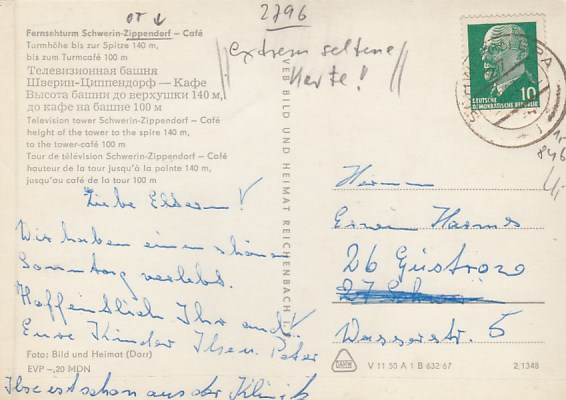 OT ↓
2796
Fernsehturm Schwerin-Zippendorf – Café
Turmhöhe bis zur Spitze 140 m,
bis zum Turmcafé 100 m
Телевизионная башня
Шверин-Циппендорф — Кафе
Высота башни до верхушки 140 м,
до кафе на башне 100 м
Television tower Schwerin-Zippendorf – Café
height of the tower to the spire 140 m,
to the tower-café 100 m
Tour de télévision Schwerin-Zippendorf – Café
hauteur de la tour jusqu'à la pointe 140 m,
jusqu'au café de la tour 100 m
Liebe Eltern!
Wir haben einen schönen
Sonntag verlebt.
Hoffentlich Ihr auch!
Eure Kinder Ilse u. Peter
Foto: Bild und Heimat (Darr)
EVP –,20 MDN
Ilse ist schon aus der Klinik
VEB BILD UND HEIMAT REICHENBACH i. V.
extrem seltene
Karte!
10
DEUTSCHE
DEMOKRATISCHE REPUBLIK
Herrn
Erwin Harms
26 Güstrow
Wasserstr. 5
V 11 50 A 1 B 632/67
2/1348